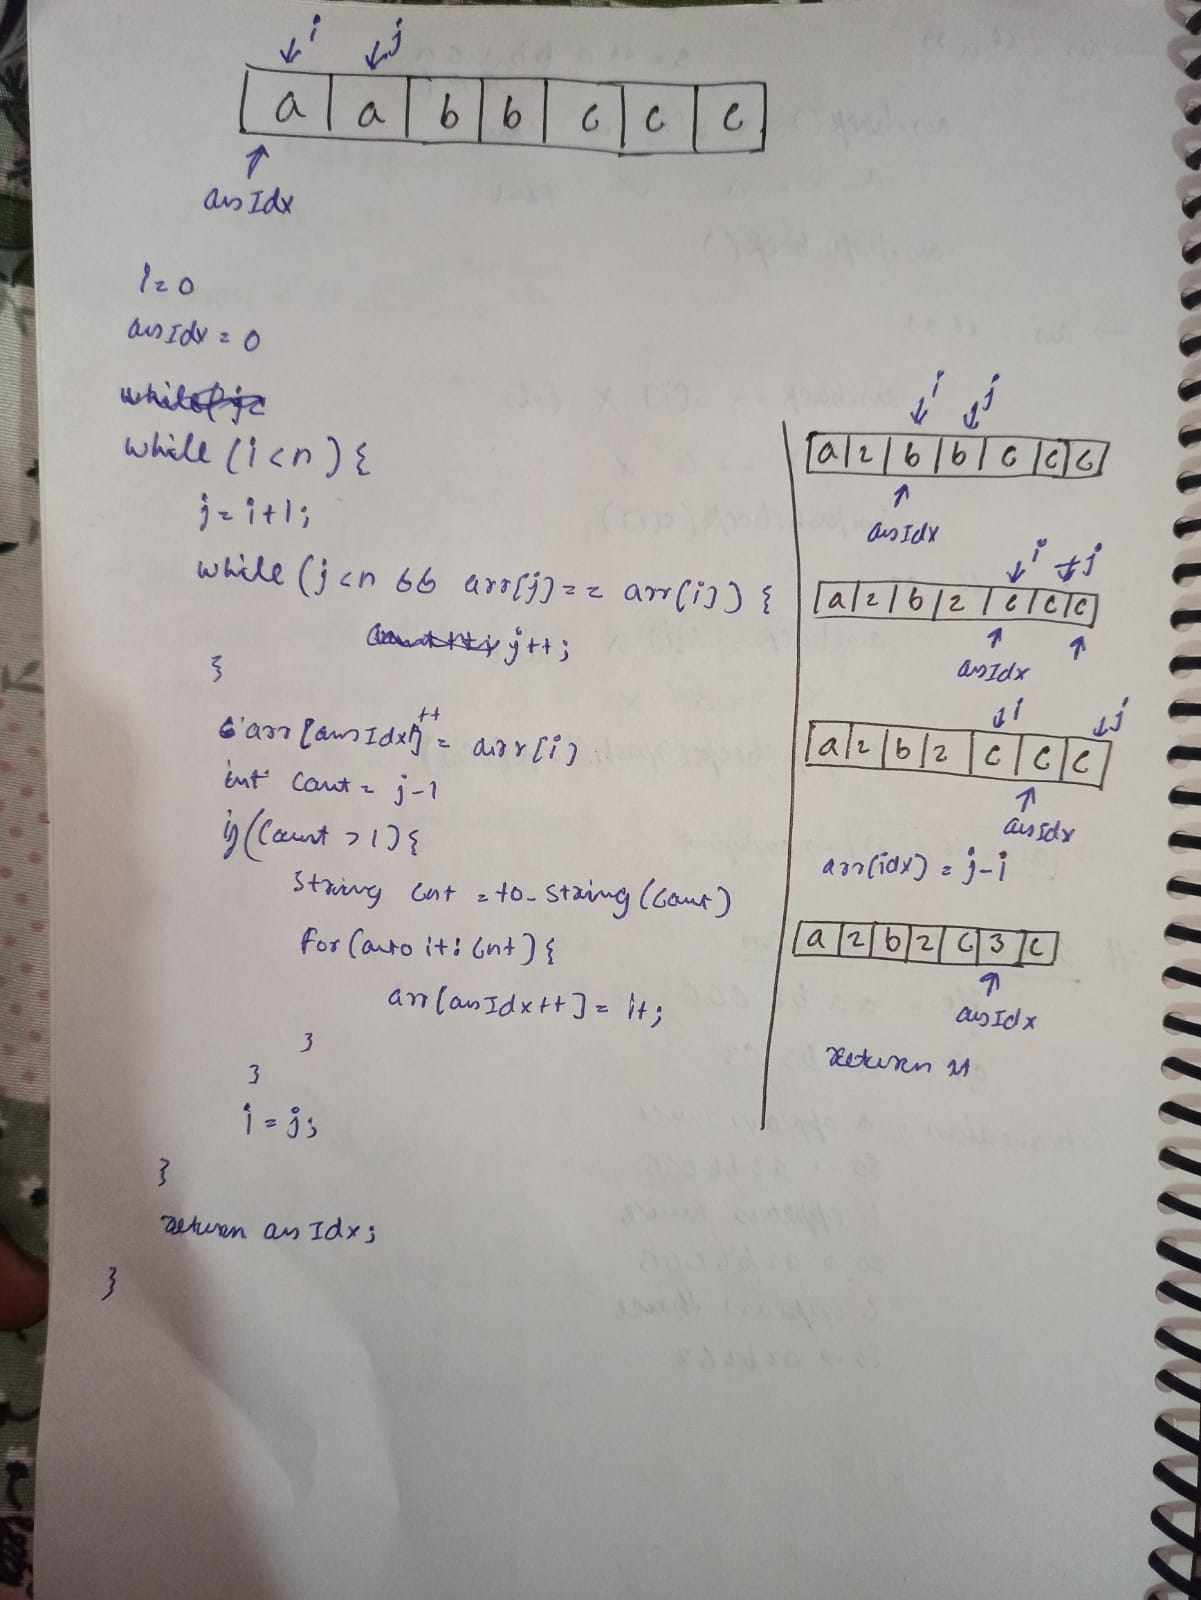 i j
a a b b c c c
ansIdx
i=0
ansIdx = 0
while (i<n) {
j = i+1;
while (j<n && arr[j]== arr[i]) {
j++;
}
arr[ansIdx++] = arr[i]
int Count = j-i
if (Count >1) {
string cnt = to_string(Count)
for (auto it: cnt) {
arr[ansIdx++] = it;
}
}
i = j;
}
return ansIdx;
}
i j
a 2 b b c c c
ansIdx
i j
a 2 b 2 c c c
ansIdx
i j
a 2 b 2 c c c
ansIdx
arr(idx) = j-i
a 2 b 2 c 3 c
ansIdx
return